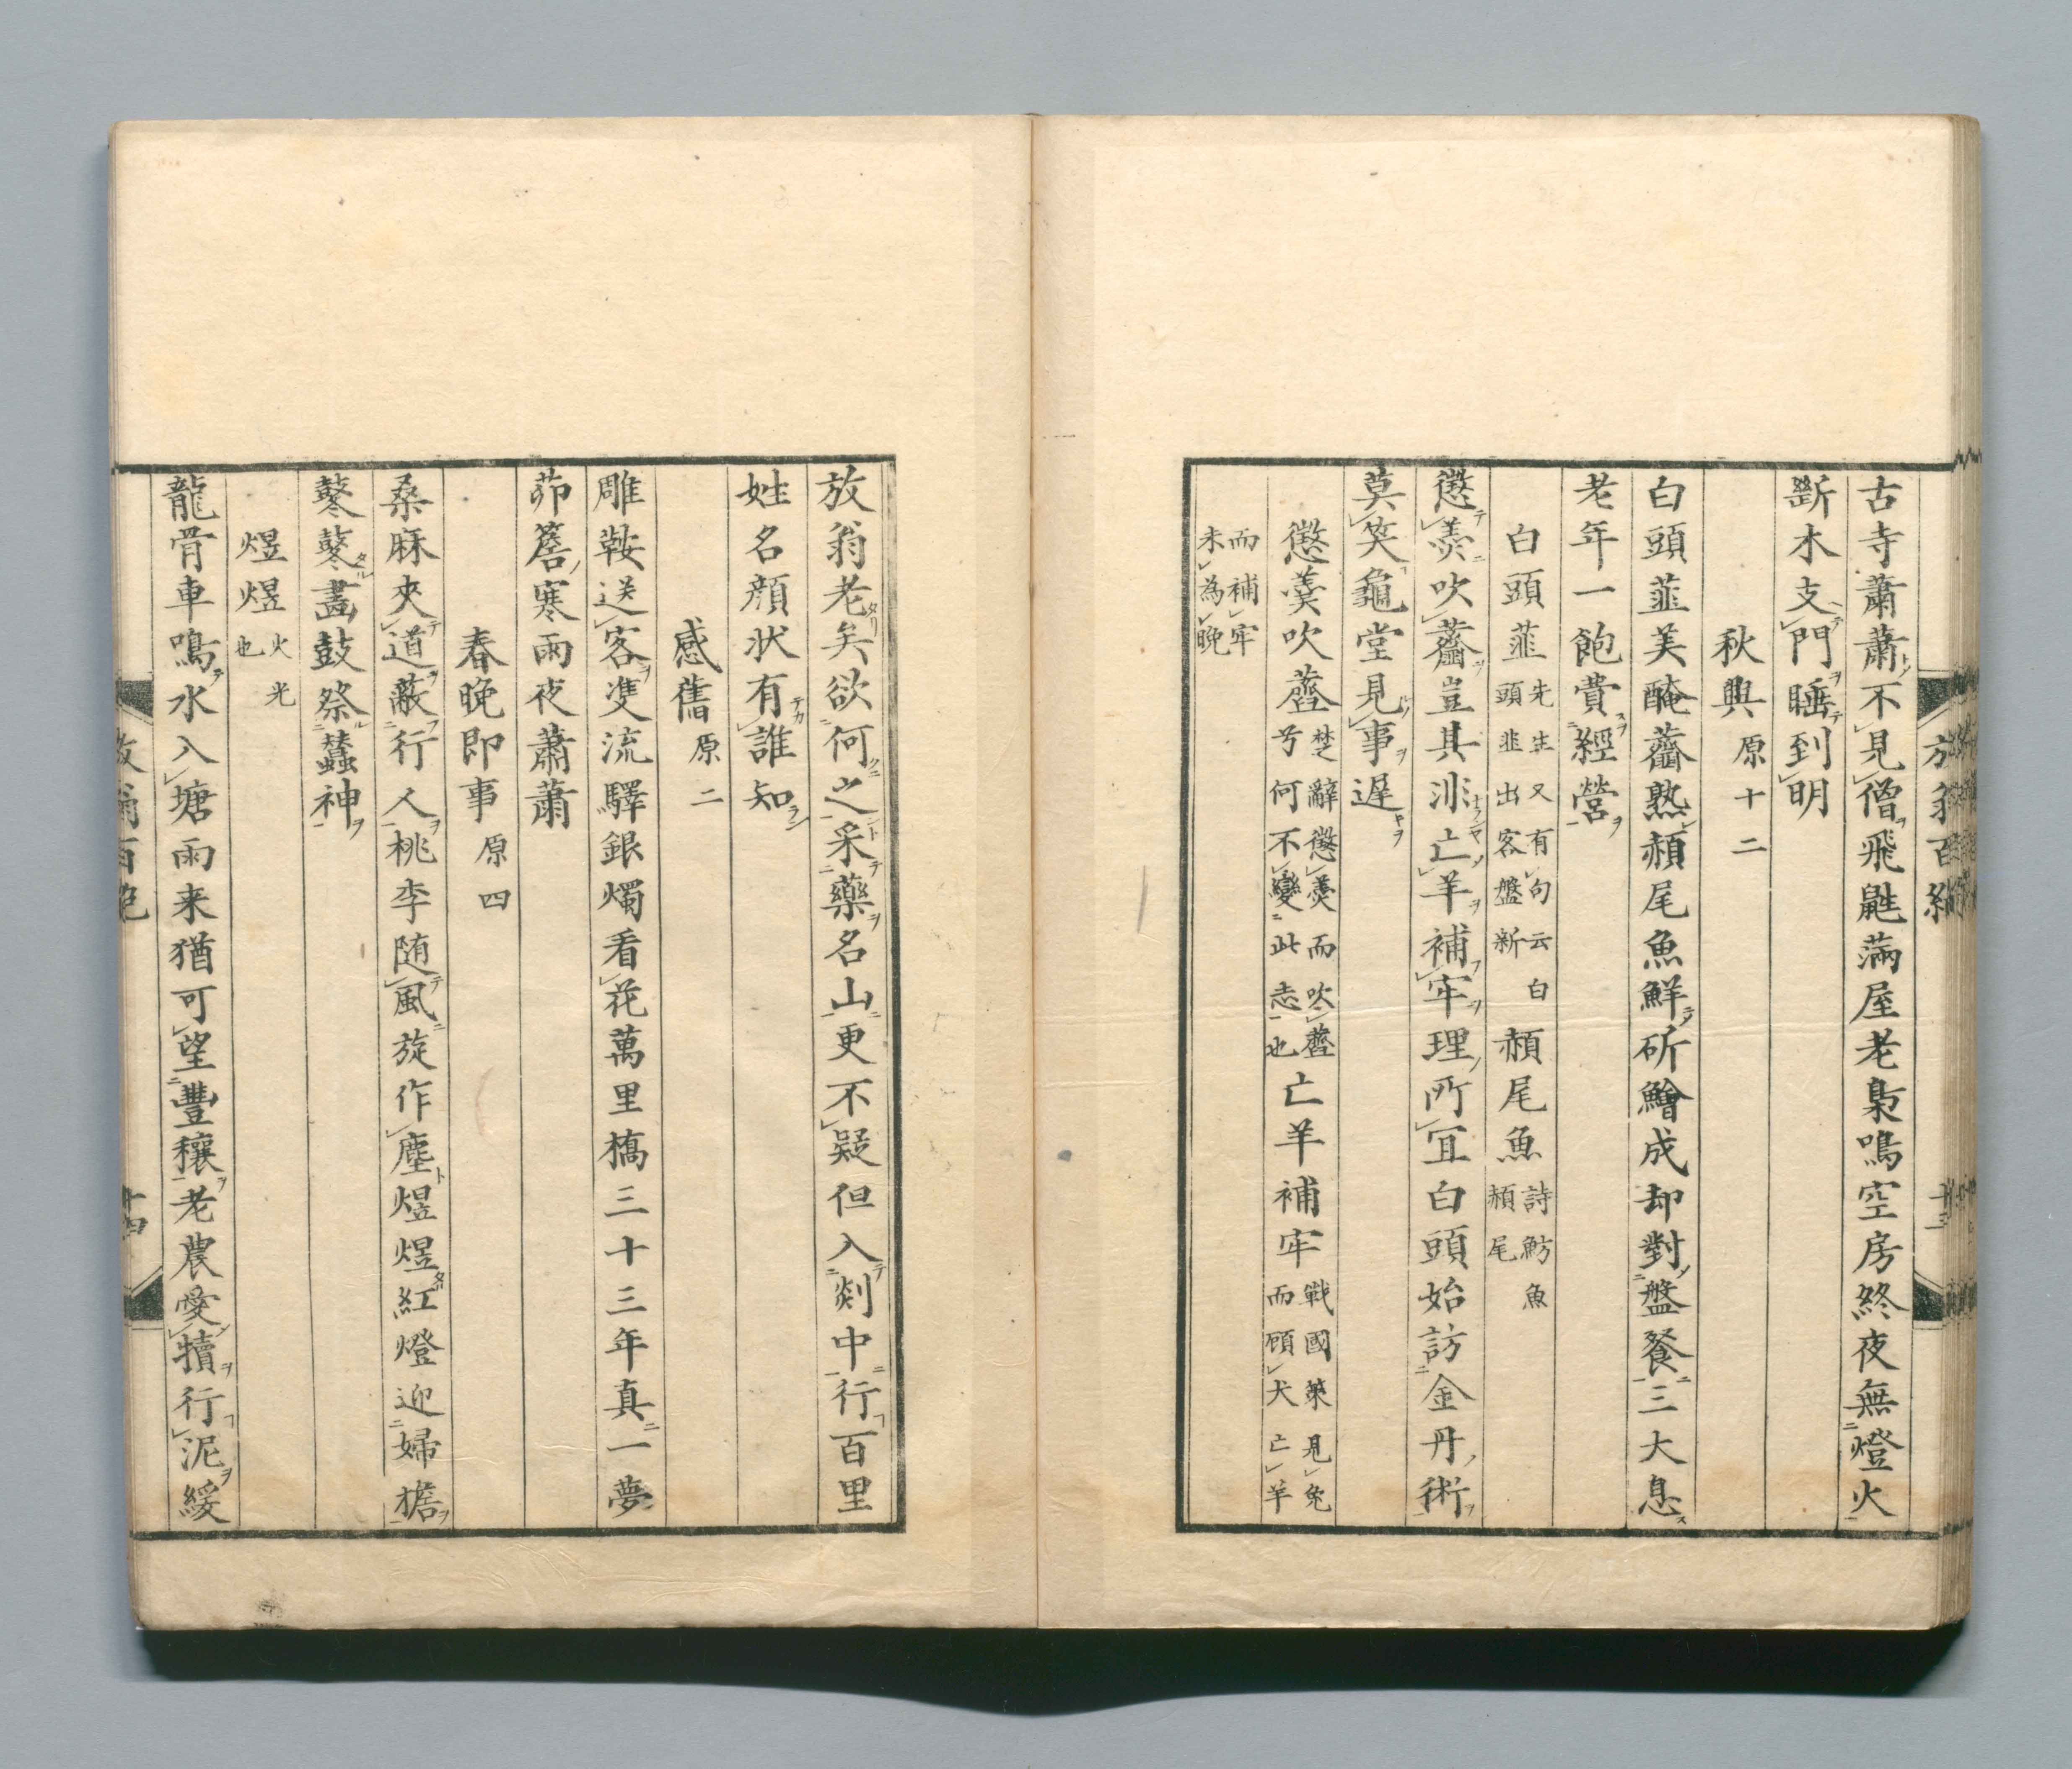 古寺蕭蕭不見僧飛鼪滿屋老梟鳴空房終夜無燈火
斷木支門睡到明
秋興原十二
白頭韮美醃虀熟頳尾魚鮮斫鱠成却對盤餐三大息
老年一飽費經營
白頭韮先生又有句云白頭韭出客盤新頳尾魚詩魴魚頳尾
懲羹吹虀豈其非亡羊補牢理所宜白頭始訪金丹術
莫笑龜堂見事遲
懲羹吹虀楚辭懲羹而吹虀兮何不變此志也亡羊補牢戰國策見兔而顧犬亡羊
而補牢未為晚
放翁老矣欲何之采藥名山更不疑但入剡中行百里
姓名顔状有誰知
感舊原二
雕鞍送客雙流驛銀燭看花萬里橋三十三年真一夢
茆簷寒雨夜蕭蕭
春晚即事原四
桑麻夾道蔽行人桃李随風旋作塵煜煜紅燈迎婦擔
鼕鼕畫鼓祭蠶神
煜煜火光也
龍骨車鳴水入塘雨来猶可望豐穰老農愛犢行泥緩
放翁百絶
十四